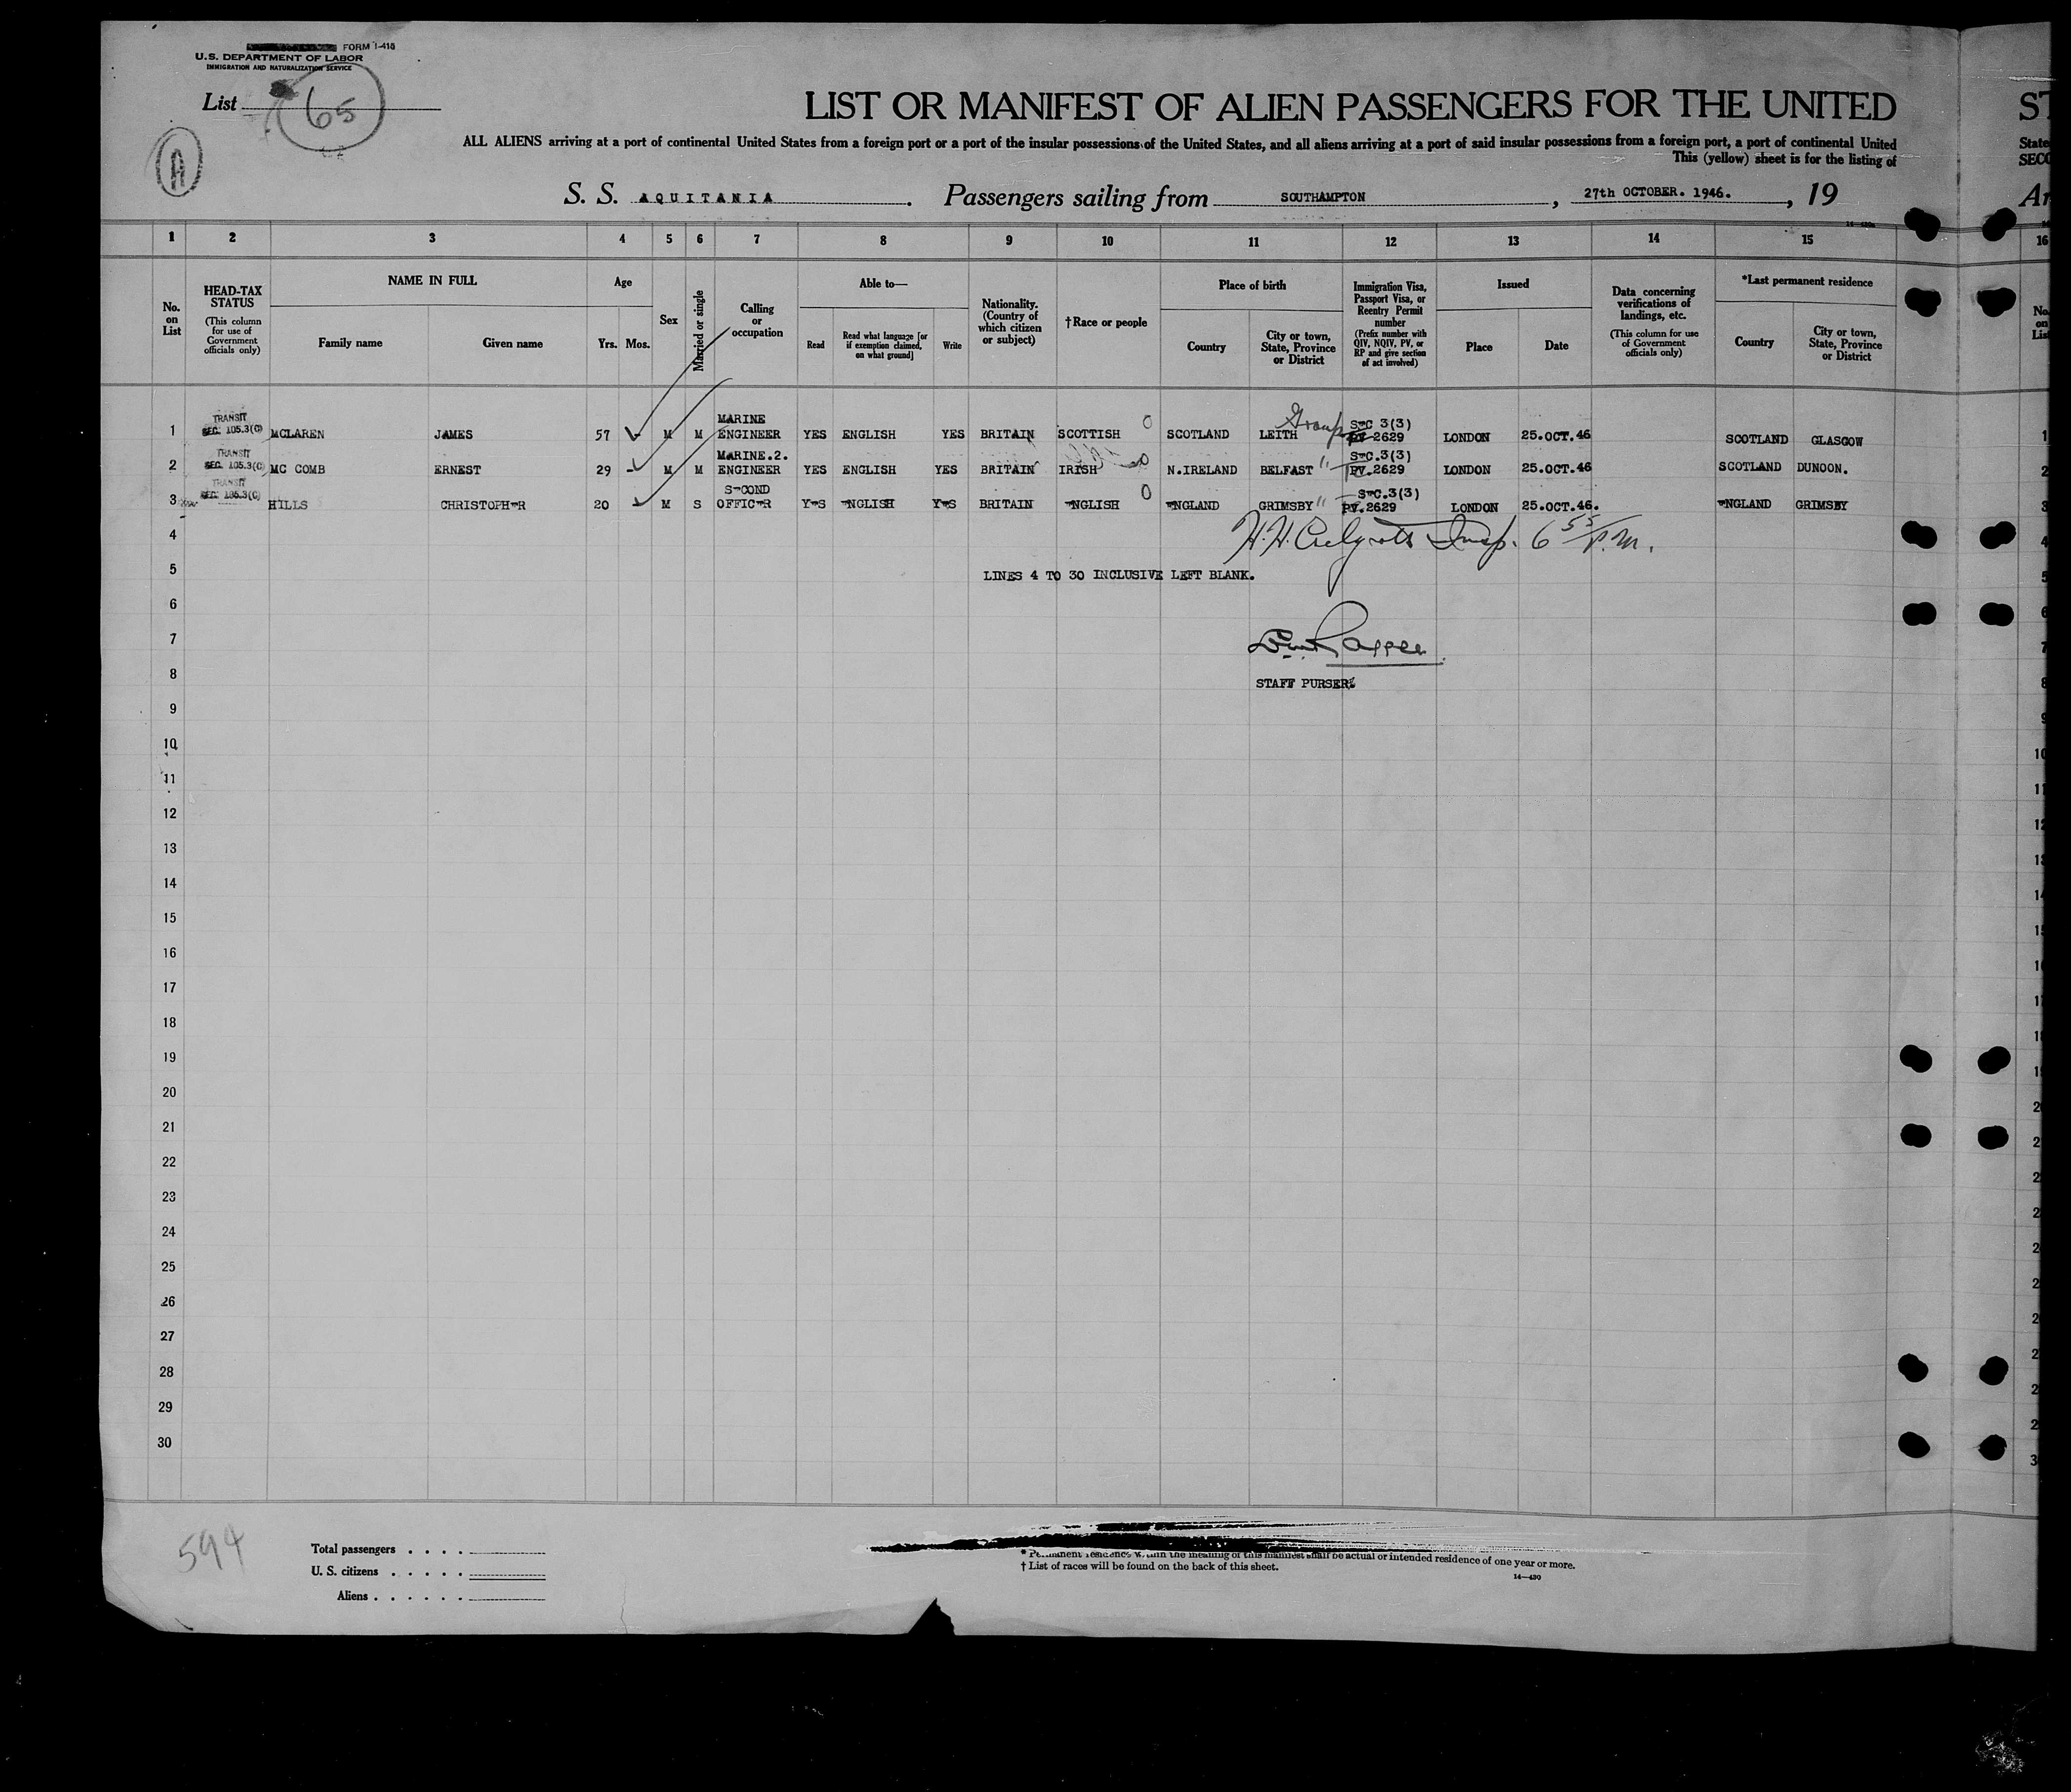 FORM I-415
U.S. DEPARTMENT OF LABOR
IMMIGRATION AND NATURALIZATION SERVICE
List 65
A
LIST OR MANIFEST OF ALIEN PASSENGERS FOR THE UNITED
ALL ALIENS arriving at a port of continental United States from a foreign port or a port of the insular possessions of the United States, and all aliens arriving at a port of said insular possessions from a foreign port, a port of continental United
This (yellow) sheet is for the listing of
S. S. AQUITANIA . Passengers sailing from SOUTHAMPTON , 27th OCTOBER. 1946. , 19
1 2 3 4 5 6 7 8 9 10 11 12 13 14 15
No. on List
HEAD-TAX STATUS
(This column for use of Government officials only)
NAME IN FULL
Family name
Given name
Age
Yrs. Mos.
Sex
Married or single
Calling or occupation
Able to—
Read
Read what language [or if exemption claimed, on what ground]
Write
Nationality. (Country of which citizen or subject)
†Race or people
Place of birth
Country
City or town, State, Province or District
Immigration Visa, Passport Visa, or Reentry Permit number
(Prefix number with QIV, NQIV, PV, or RP and give section of act involved)
Issued
Place
Date
Data concerning verifications of landings, etc.
(This column for use of Government officials only)
*Last permanent residence
Country
City or town, State, Province or District
1 TRANSIT SEC. 105.3(C) MCLAREN JAMES 57 M M MARINE ENGINEER YES ENGLISH YES BRITAIN SCOTTISH 0 SCOTLAND LEITH SEC 3(3) PV 2629 LONDON 25.OCT.46 SCOTLAND GLASGOW
2 TRANSIT SEC. 105.3(C) MC COMB ERNEST 29 - M M MARINE.2. ENGINEER YES ENGLISH YES BRITAIN IRISH 0 N.IRELAND BELFAST " SEC.3(3) PV.2629 LONDON 25.OCT.46 SCOTLAND DUNOON.
3 TRANSIT SEC. 105.3(C) HILLS CHRISTOPHER 20 - M S SECOND OFFICER YES ENGLISH YES BRITAIN ENGLISH 0 ENGLAND GRIMSBY " SEC.3(3) PV.2629 LONDON 25.OCT.46. ENGLAND GRIMSBY
4
Insp. 6 55 P.M.
5
LINES 4 TO 30 INCLUSIVE LEFT BLANK.
6
7
8
STAFF PURSER.
9
10
11
12
13
14
15
16
17
18
19
20
21
22
23
24
25
26
27
28
29
30
594
Total passengers . . . .
U. S. citizens . . . . .
Aliens . . . . . .
* Permanent residence within the meaning of this manifest shall be actual or intended residence of one year or more.
† List of races will be found on the back of this sheet.
14—430